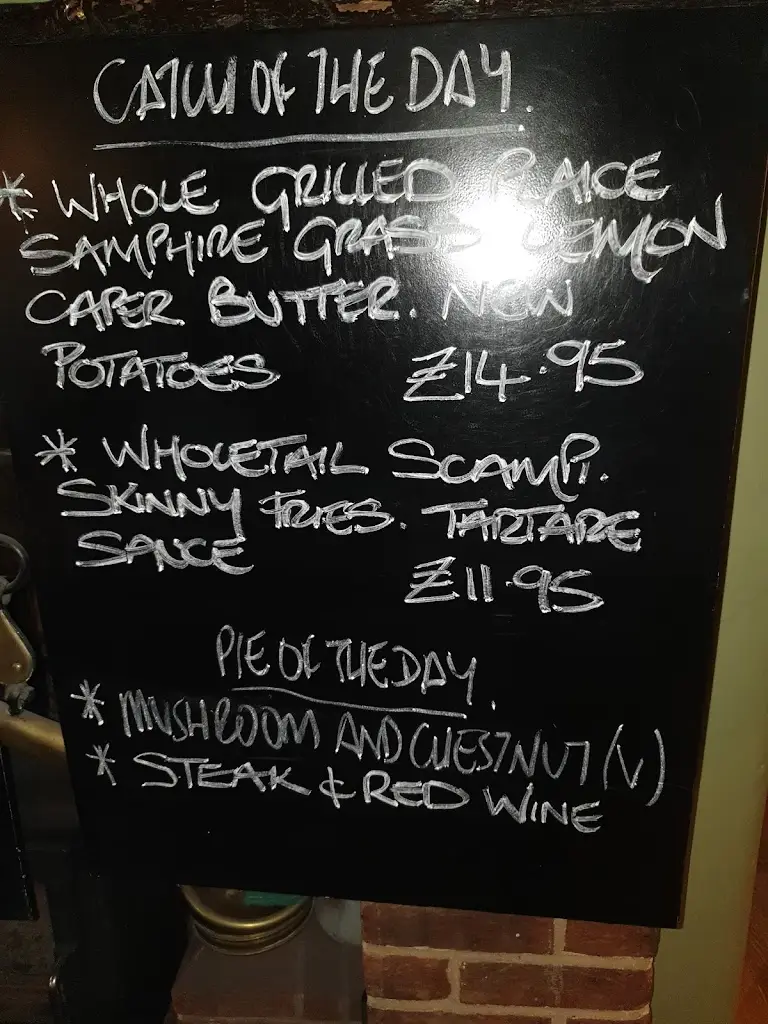 CATCH OF THE DAY.
* WHOLE GRILLED PLAICE
SAMPHIRE GRASS LEMON
CAPER BUTTER. NEW
POTATOES £14.95
* WHOLETAIL SCAMPI.
SKINNY FRIES. TARTARE
SAUCE
£11.95
PIE OF THE DAY.
* MUSHROOM AND CHESTNUT (V)
* STEAK & RED WINE